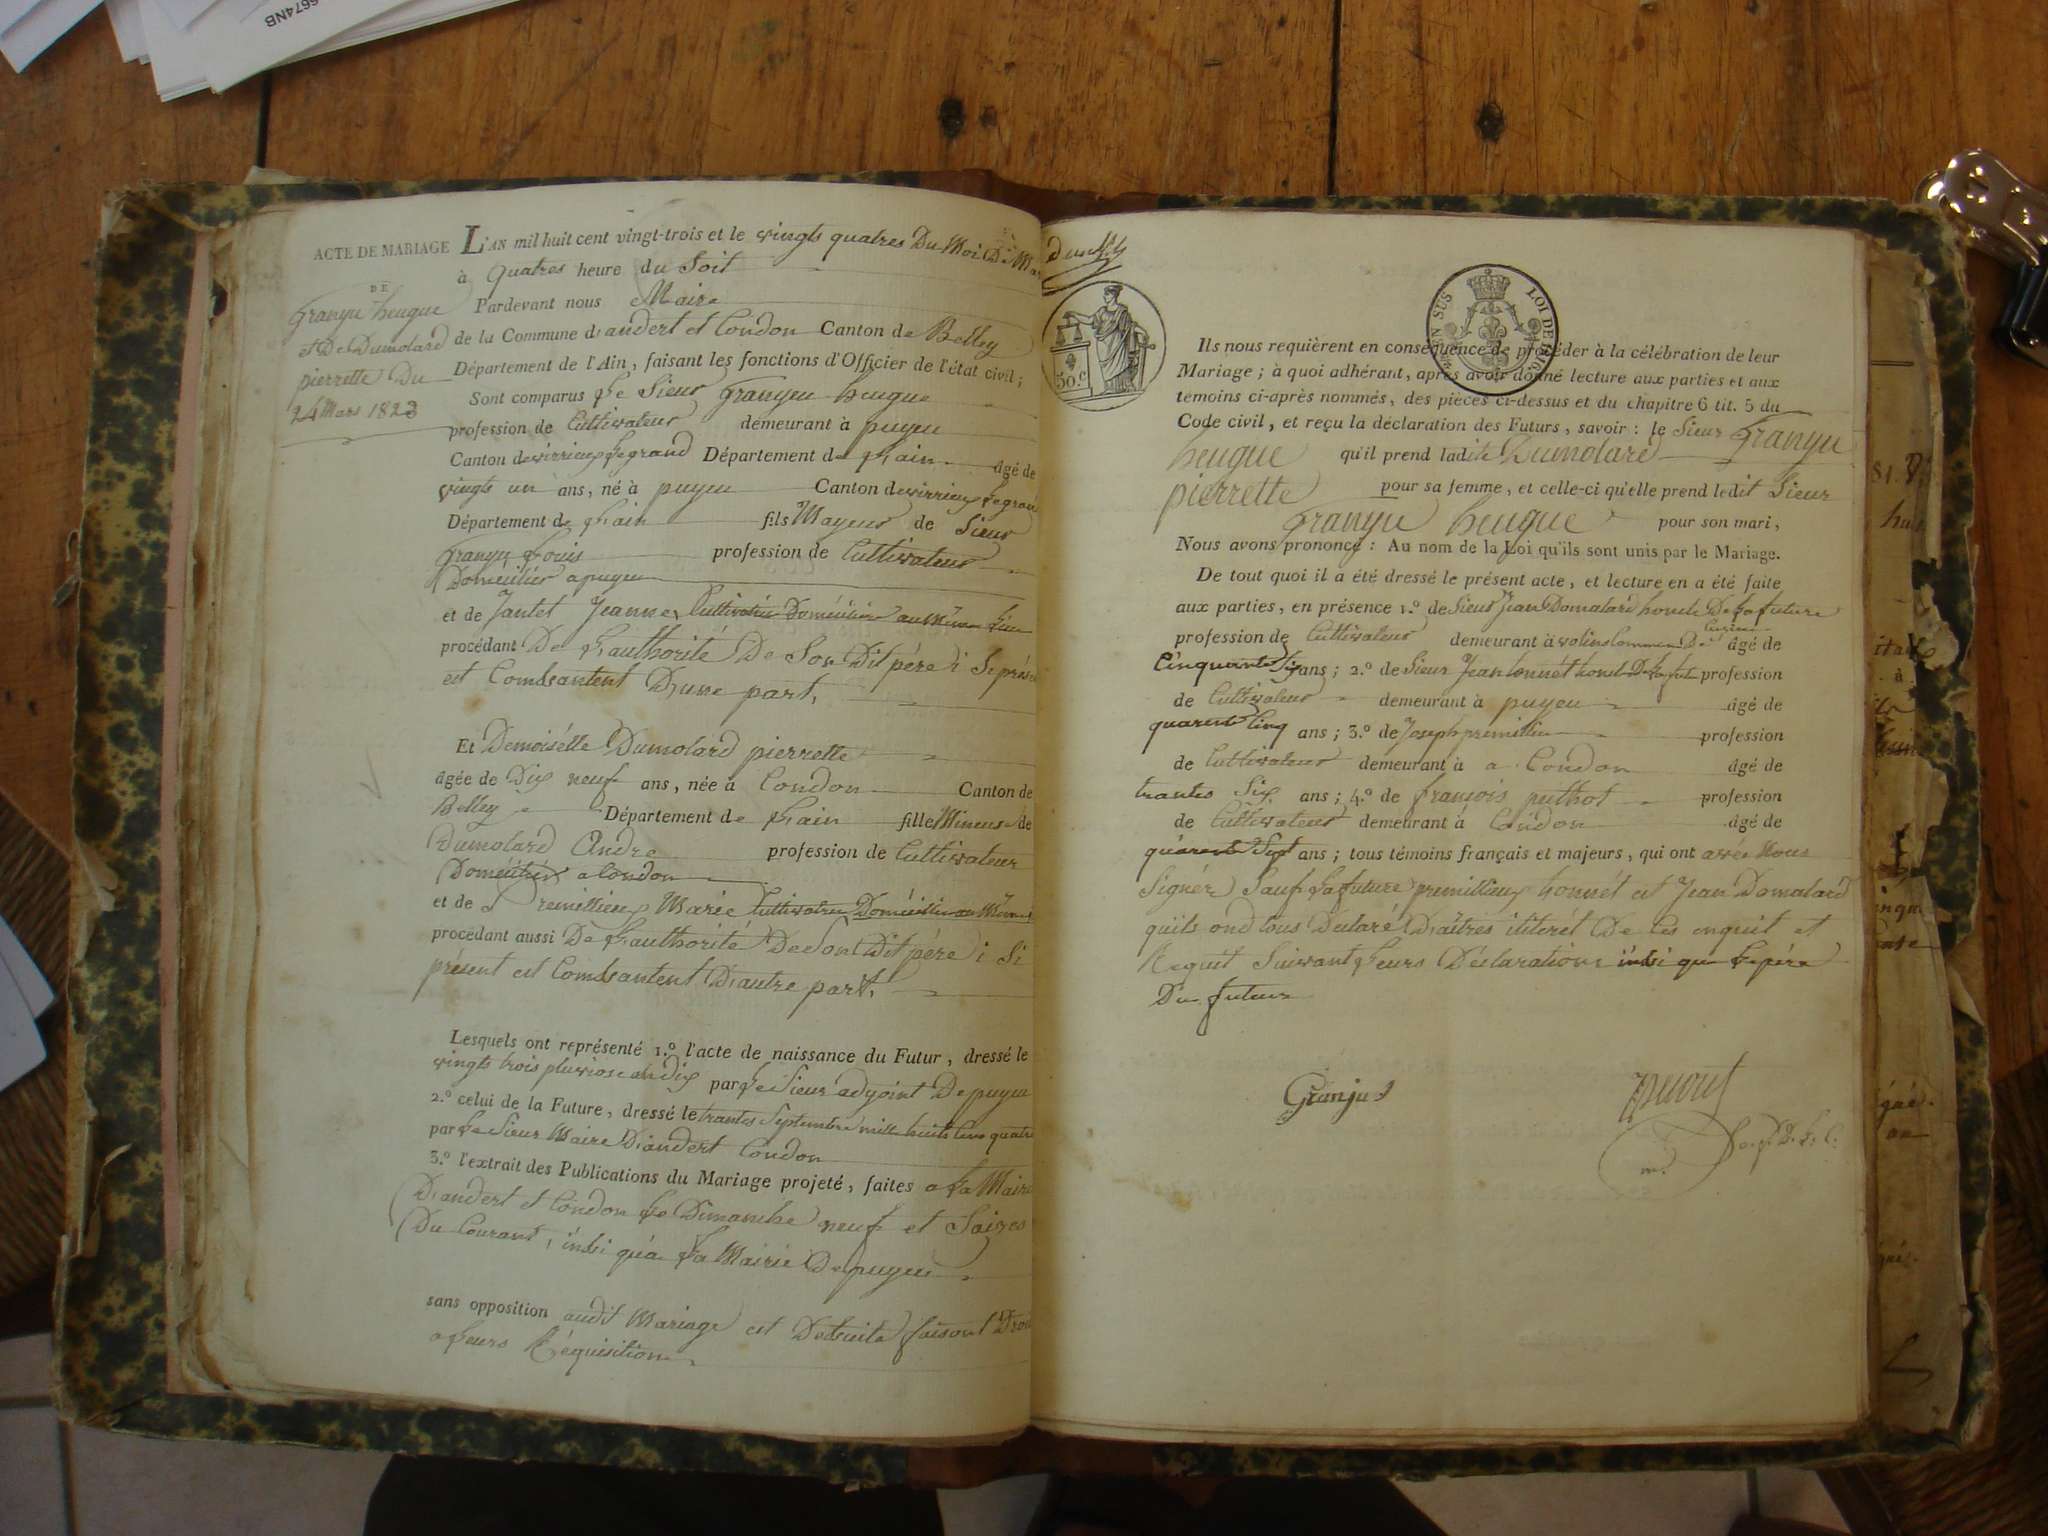 6674NB
ACTE DE MARIAGE
DE
Granju heugue
et De Dumolard
pierrette Du
24 Mars 1823
L'AN mil huit cent vingt-trois et le vingts quatres Du Moi De Mar
à quatres heure du Soit
Pardevant nous Maire
de la Commune dandert et Condon Canton de Belley
Département de l'Ain, faisant les fonctions d'Officier de l'état civil;
Sont comparus Le Sieur Granyeu heugue
profession de Cultivateur demeurant à puyeu
Canton de virrieux Le grand Département de Lain âgé de
vingts un ans, né à puyeu Canton de virrieux Le grand
Département de Lain fils Mayeur de Sieur
Granju Louis profession de Cultivateur
Doméülier a puyeu
et de Jantet Jeanne, Cultivatrice Doméülier au Même Lieu
procédant De Lauthorité De Son Dit père i Si prés
est Comdsantent D'une part,
Et Demoisélle Dumolard pierrette
âgée de Dix neuf ans, née à Condon Canton de
Belley Département de Lain fille Mineuse de
Dumolard Andre profession de Cultivateur
Doméülier a Condon
et de premillieux Marie Cultivatrice Doméülier au Même
procédant aussi De Lauthorité De Son Dit père i Si
présent est Comdsantent D'autre part.
Lesquels ont représenté 1.º l'acte de naissance du Futur, dressé le
vingts trois pluviose an dix par Le Sieur adyoint De puyeu
2.º celui de la Future, dressé le trantes Septembre mill huits Cens quatre
par Le Sieur Maire Dandert Condon
3.º l'extrait des Publications du Mariage projeté, faites a La Mairie
Dandert et Condon Le Dimanche neuf et Saizes
Du Courant, insi qu'a La Mairie De puyeu
sans opposition audit Mariage est Detsuite faisont Droit
a Leurs Réquisition
50.C
LOI DE
EN SUS
Ils nous requièrent en conséquence de procéder à la célébration de leur
Mariage; à quoi adhérant, après avoir donné lecture aux parties et aux
témoins ci-après nommés, des pièces ci-dessus et du chapitre 6 tit. 5 du
Code civil, et reçu la déclaration des Futurs, savoir: le Sieur Granyu
heugue qu'il prend ladite Dumolard
pierrette pour sa femme, et celle-ci qu'elle prend ledit Sieur
Granyu heugue pour son mari,
Nous avons prononcé: Au nom de la Loi qu'ils sont unis par le Mariage.
De tout quoi il a été dressé le présent acte, et lecture en a été faite
aux parties, en présence 1.º de Sieur Jean Domalard honcle De La future
profession de Cultivateur demeurant à volins Commun De âgé de
Cinquante Six ans; 2.º de Sieur Jean honnét honcle De La fut profession
de Cultivateur demeurant à puyeu âgé de
quarente Cinq ans; 3.º de Joseph premillieu profession
de Cultivateur demeurant à a Condon âgé de
trantes Six ans; 4.º de françois puthot profession
de Cultivateur demeurant à Condon âgé de
quarente Sept ans; tous témoins français et majeurs, qui ont avée Nous
Signér Sauf La future premillieux honnét et Jean Domalard
quits ond tous Déclaré D'aîtres ilitérét De Ces enquit et
Requit Suivant Leurs Déclaration insi que Le père
Du futeur
Granju